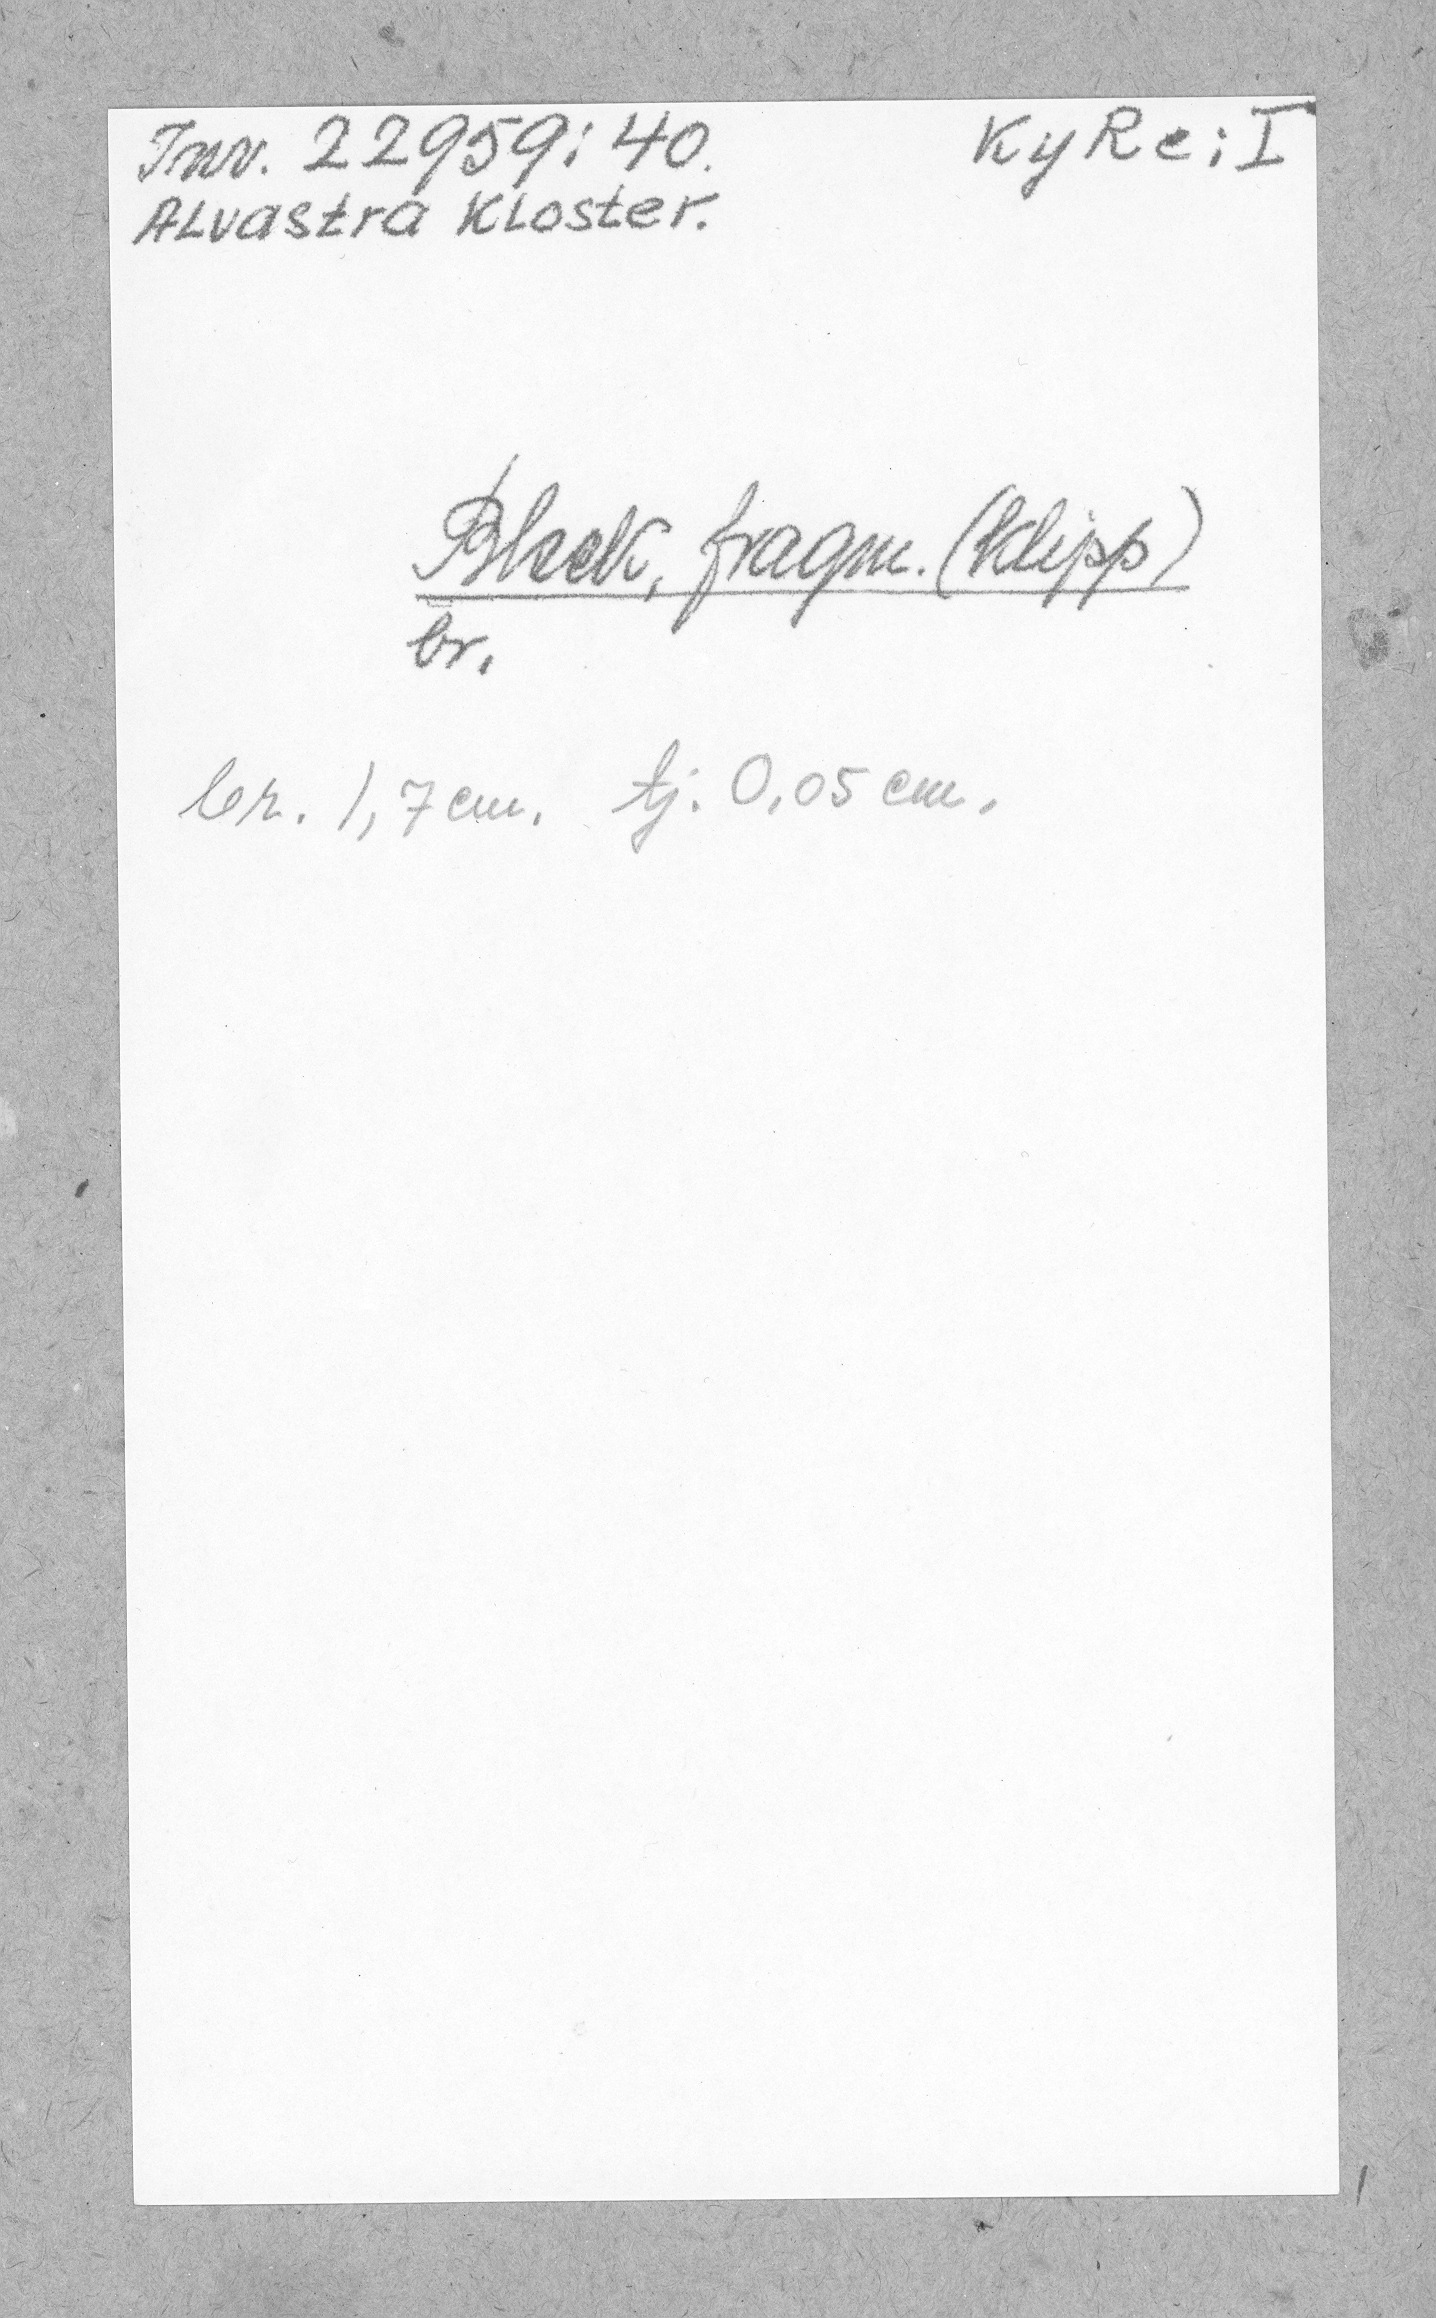 Inv. 22959:40. KyRe:I
Alvastra Kloster.
Bleck, fragm. (klipp)
br.
br. 1,7 cm. tj. 0,05 cm.